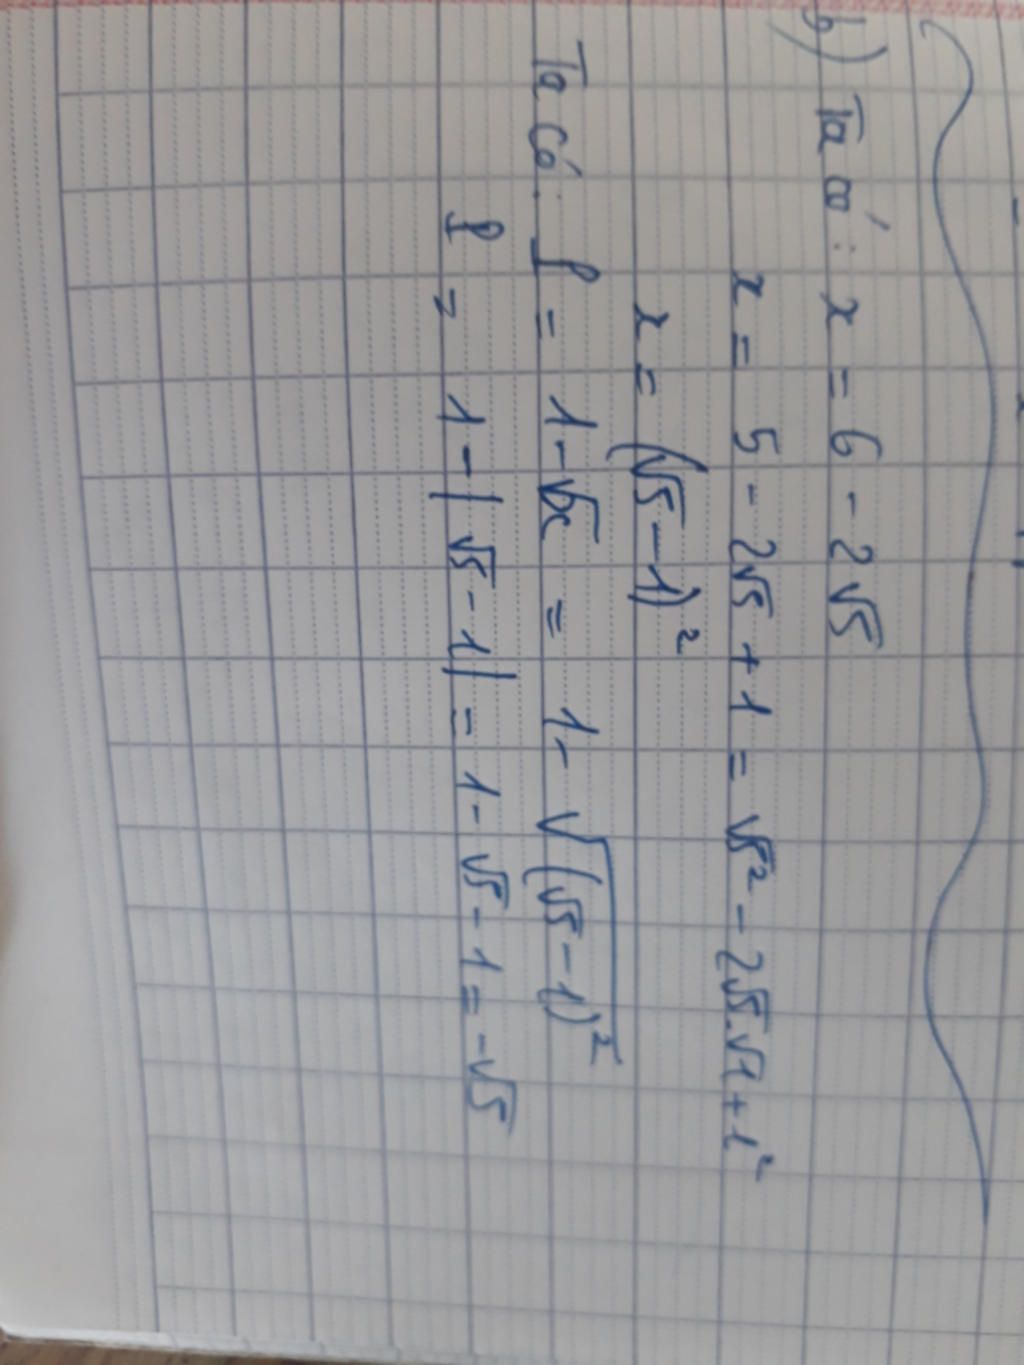 b) Ta có: x = 6 - 2√5
x = 5 - 2√5 + 1 = √5² - 2√5.√1 + 1²
x = (√5 - 1)²
Ta có: P = 1 - √x = 1 - √(√5 - 1)²
P = 1 - |√5 - 1| = 1 - √5 - 1 = -√5